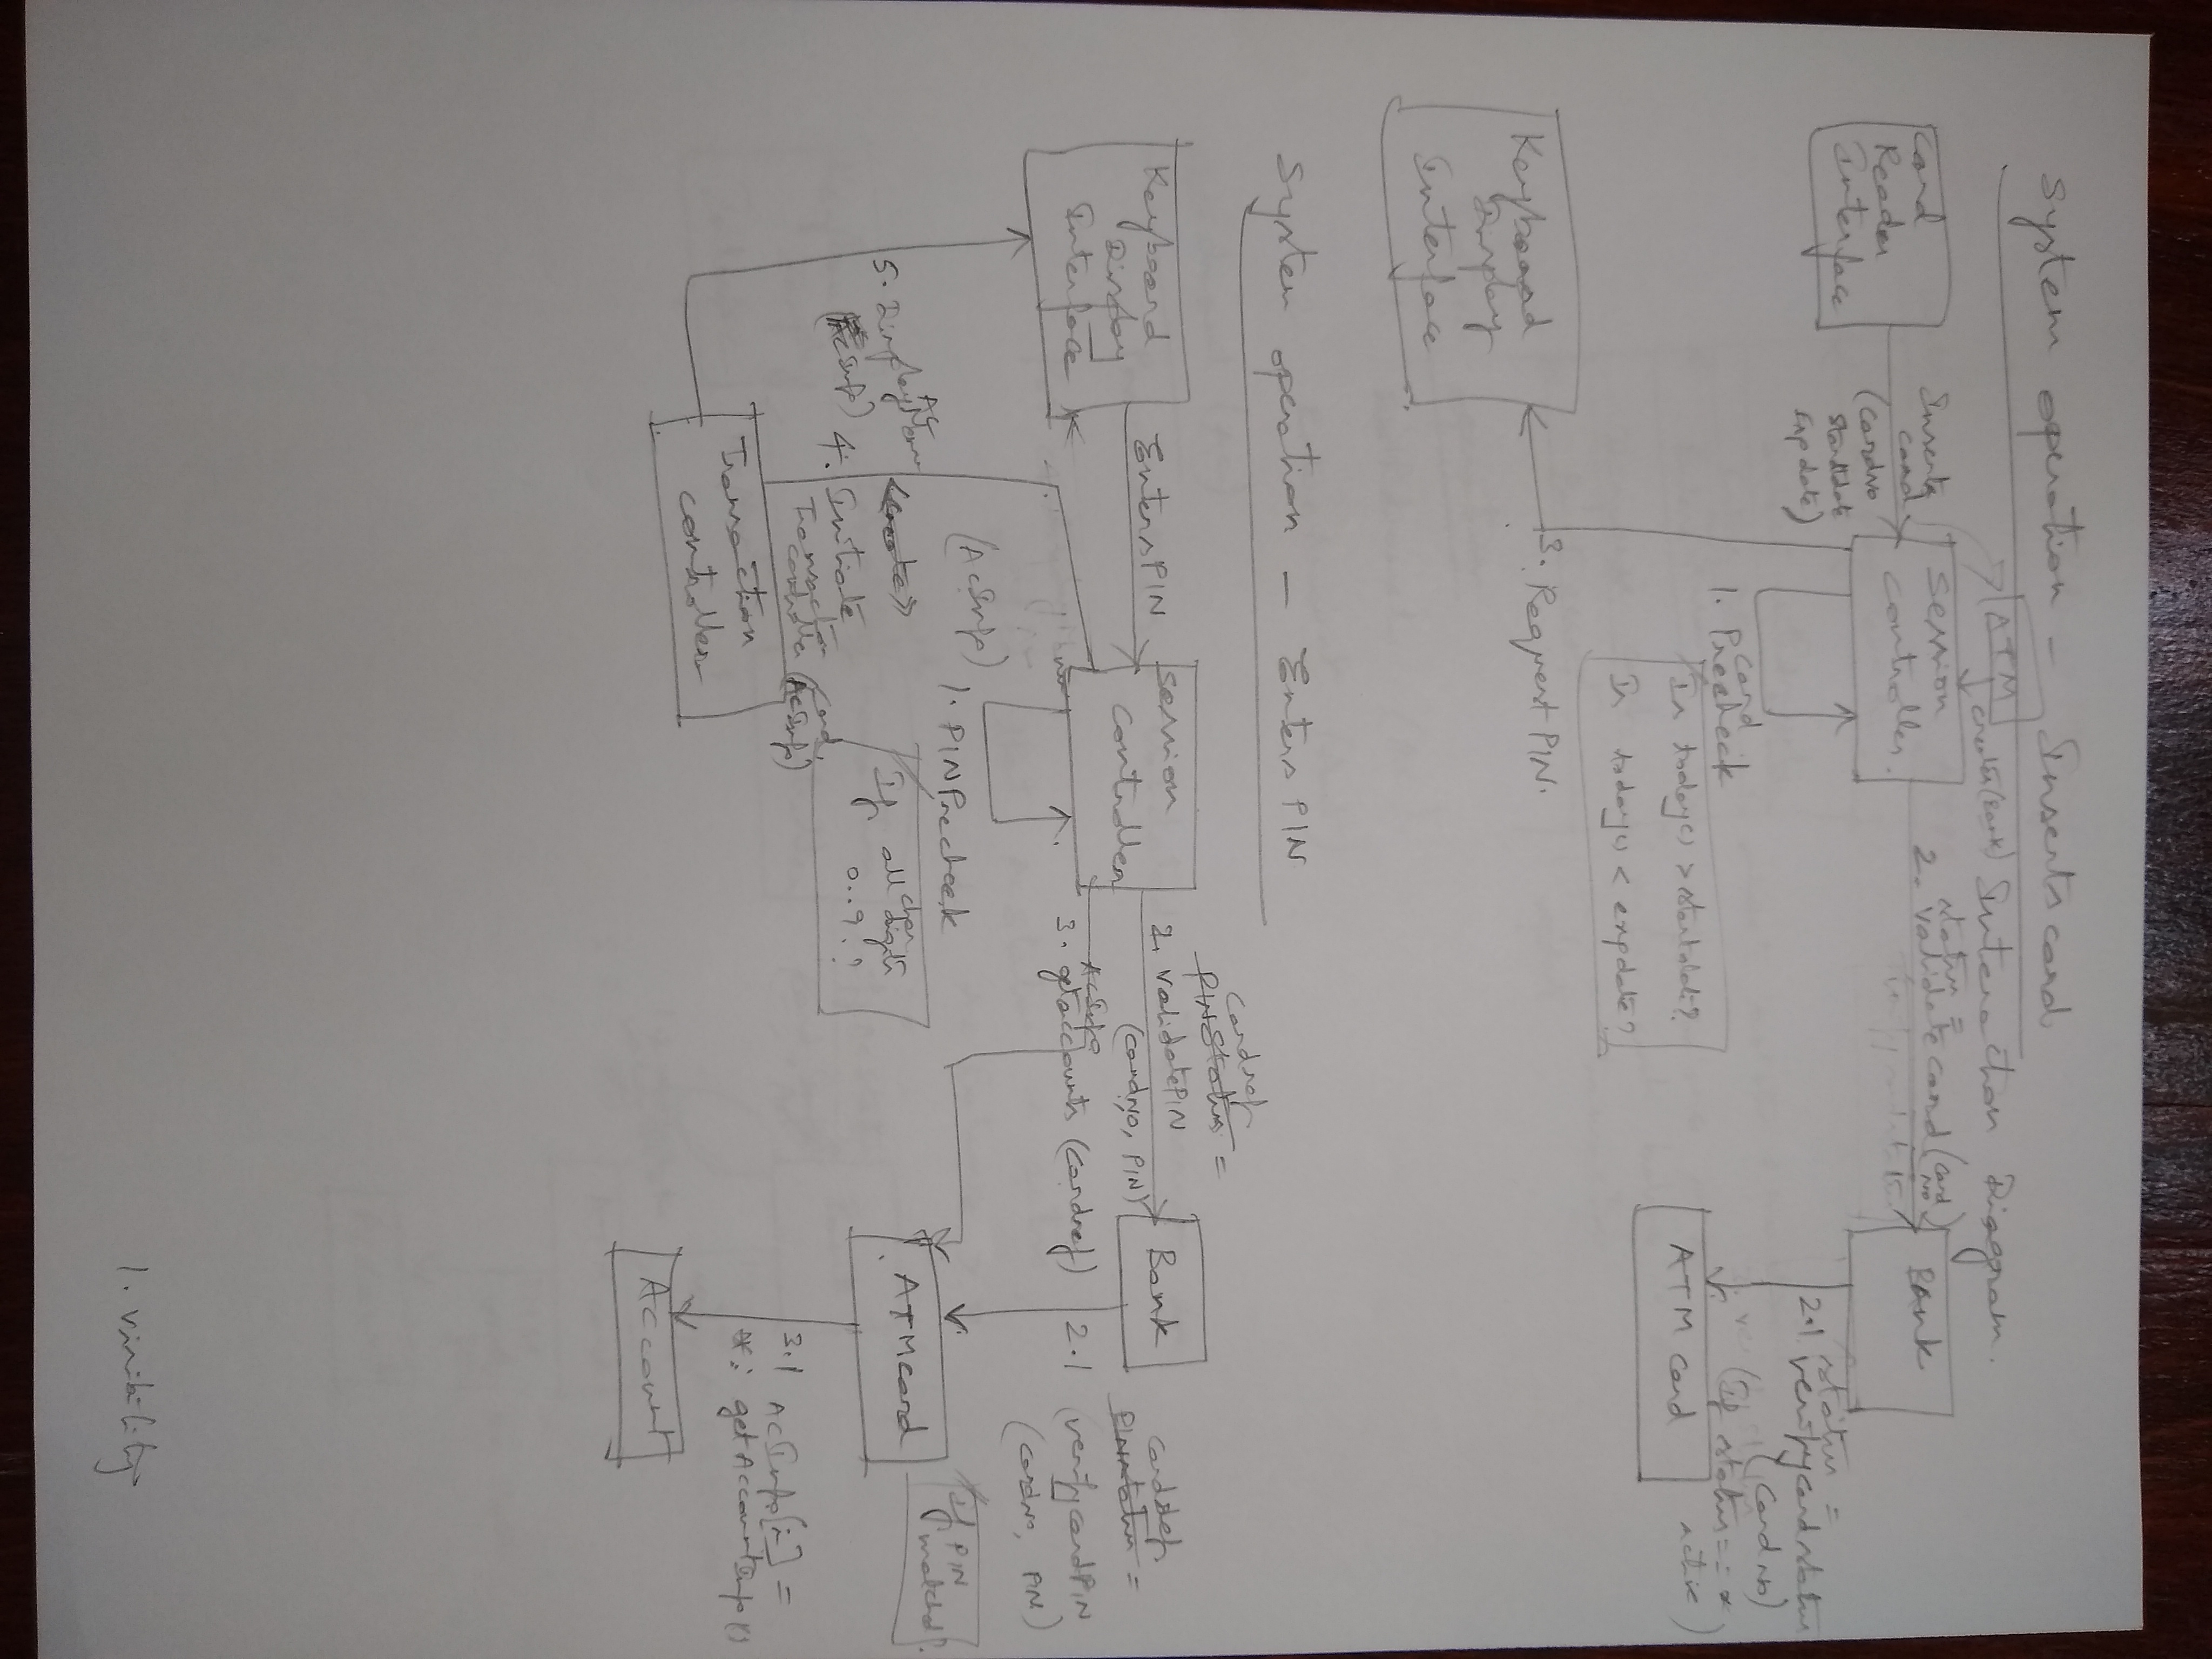 System operation - Inserts card
ATM
creates (Bank)
Interaction Diagram.
Card
Reader
Interface
Inserts
card
(CardNo
Startdate
Exp date)
Session
controller.
status =
2. validate card (Card
No
)
Bank
2.1 status =
verifycardstatus
(Card No)
(If status == *
active)
ATM card
1. Card
Precheck
Is today() > startdate?
Is today() < expdate?
3. Request PIN.
Keyboard
Display
Interface
System operation - Enters PIN
Keyboard
Display
Interface
Enters PIN
Session
controller
Cardref
PINStatus =
2. validatePIN
(cardNo, PIN)
Bank
Cardref
PINstatus =
2.1 (verifycardPIN
(cardNo, PIN)
If PIN
matched?
AcInfo
3. getaccounts (Cardref)
1. PINPrecheck
If all char
digits
0..9.?
ATMcard
(AcInfo)
<create>
4. Initiate
Transaction
controller (card,
AcInfo)
5. Display AC Menu
(AcInfo)
Transaction
controller
3.1 ACInfo[i] =
*: getAccountInfo()
Account
1. visibility